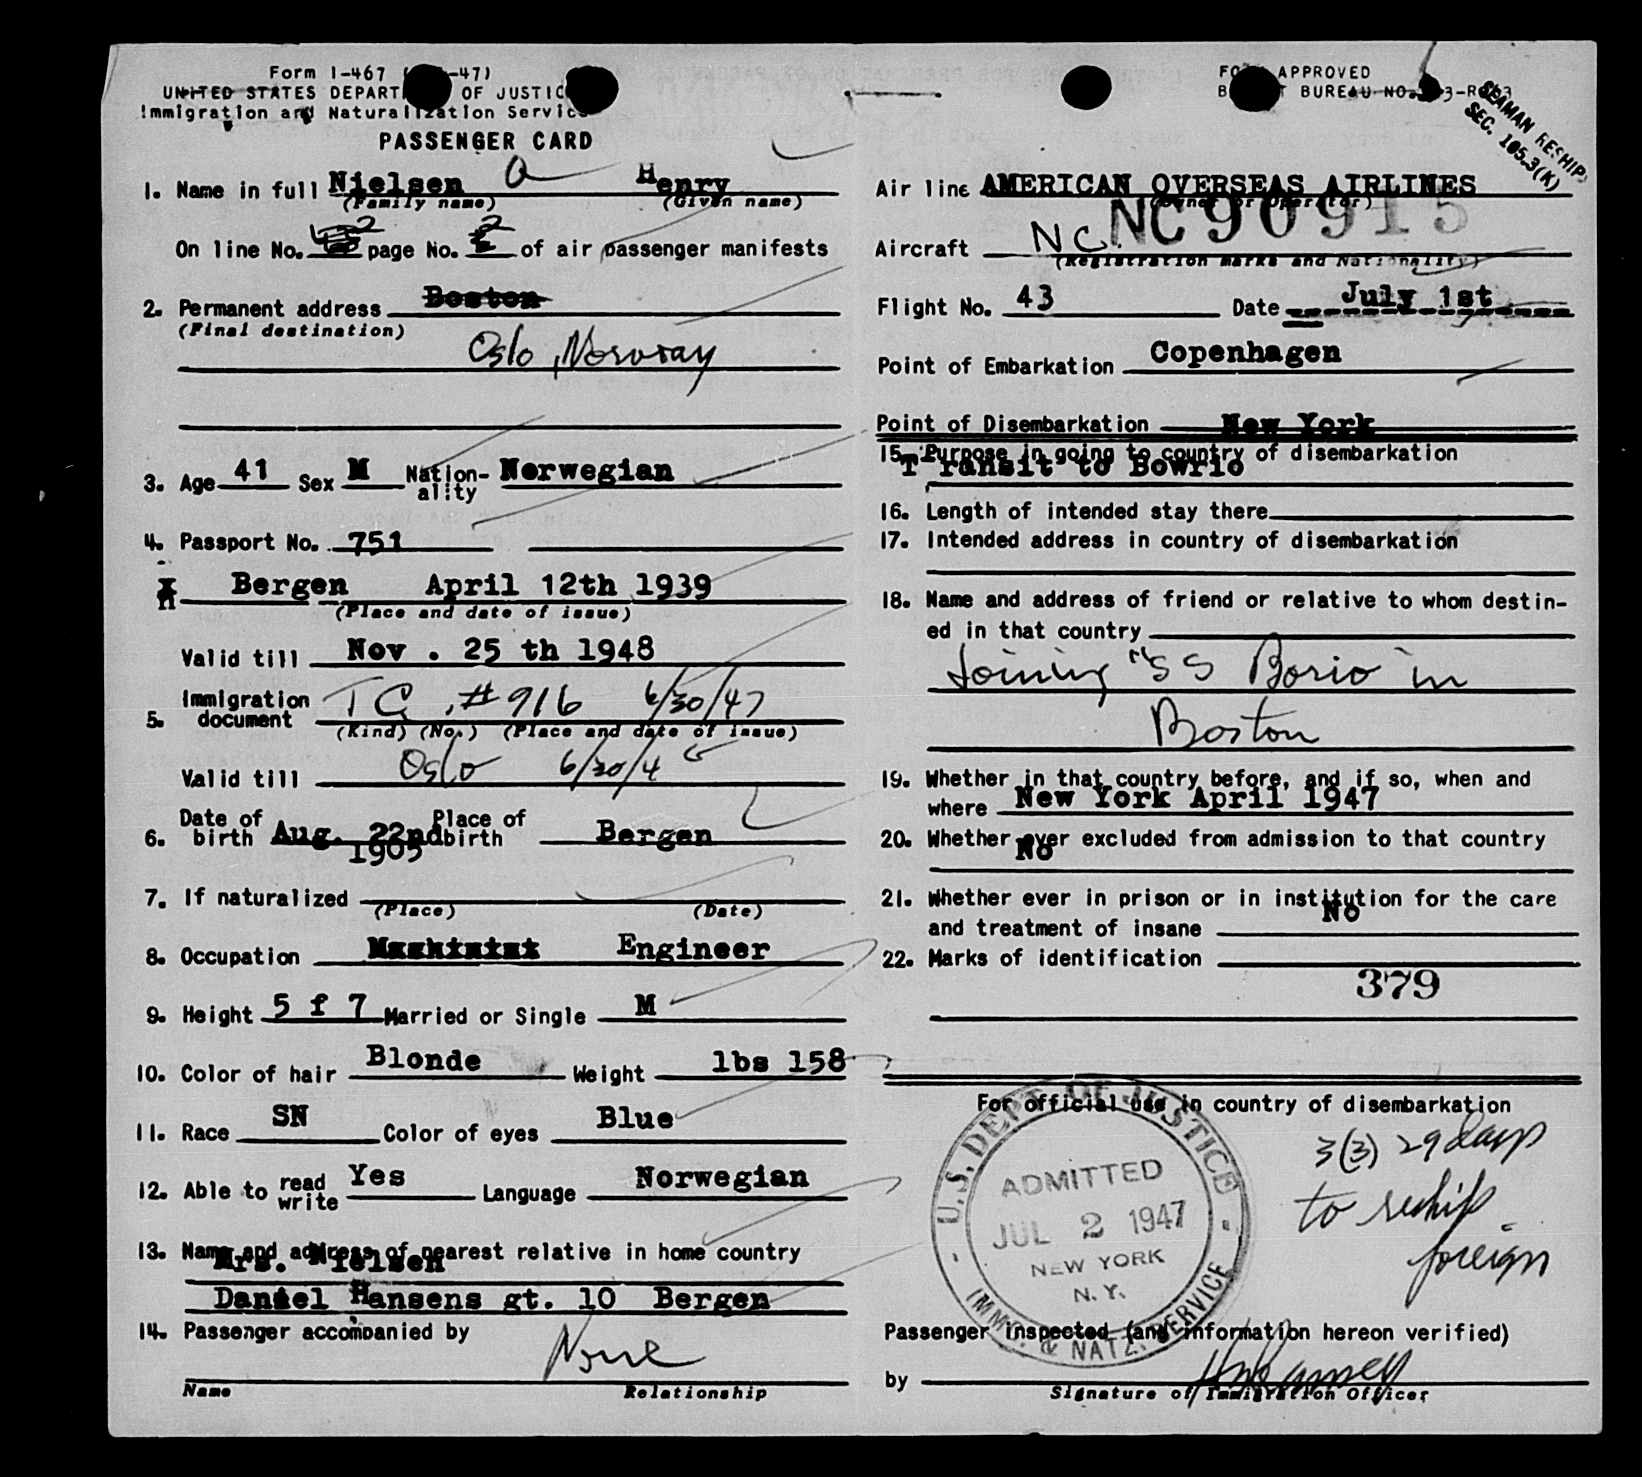 Form I-467 -47)
UNITED STATES DEPART OF JUSTIC
Immigration and Naturalization Service
PASSENGER CARD
1. Name in full Nielsen a Henry
(Family name) (Given name)
On line No. 2 page No. 2 of air passenger manifests
2. Permanent address Boston
(Final destination)
Oslo, Norway
3. Age 41 Sex M Nation-ality Norwegian
4. Passport No. 751
Bergen April 12th 1939
(Place and date of issue)
Valid till Nov . 25 th 1948
5. Immigration document T C, # 916 6/30/47
(Kind) (No.) (Place and date of issue)
Valid till Oslo 6/30/4
6. Date of birth Aug. 22nd 1905 Place of birth Bergen
7. If naturalized
(Place) (Date)
8. Occupation Engineer
9. Height 5 f 7 Married or Single M
10. Color of hair Blonde Weight lbs 158
11. Race SN Color of eyes Blue
12. Able to read write Yes Language Norwegian
13. Name and address of nearest relative in home country
Mrs. Nielsen
Daniel Hansens gt. 10 Bergen
14. Passenger accompanied by
None
Name Relationship
FORM APPROVED
BUREAU NO.
SEAMAN RESHIP
SEC. 165.3(K)
Air line AMERICAN OVERSEAS AIRLINES
(Owner or Operator)
Aircraft NC. NC90915
(Registration marks and Nationality)
Flight No. 43 Date July 1st
Point of Embarkation Copenhagen
Point of Disembarkation New York
15. Purpose in going to country of disembarkation
Transit to Bowrio
16. Length of intended stay there
17. Intended address in country of disembarkation
18. Name and address of friend or relative to whom destin-
ed in that country
Joining "SS Borio in
Boston
19. Whether in that country before, and if so, when and
where New York April 1947
20. Whether ever excluded from admission to that country
No
21. Whether ever in prison or in institution for the care
No
and treatment of insane
22. Marks of identification
379
For official use in country of disembarkation
U.S. DEPT. OF JUSTICE
ADMITTED
JUL 2 1947
NEW YORK
N.Y.
IMM. & NATZ. SERVICE
3(3) 29 days
to reship
foreign
Passenger inspected (and information hereon verified)
by
Signature of Immigration Officer